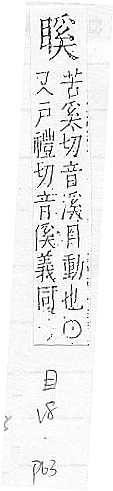 䁈
苦奚切音溪目動也〇
又戸禮切音傒義同
目
V8
P63